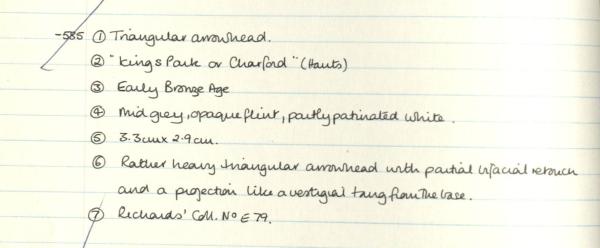 -585 ① Triangular arrowhead.
② "Kings Park or Charford" (Hants)
③ Early Bronze Age
④ Mid grey, opaque flint, partly patinated white.
⑤ 3.3cm x 2.9cm.
⑥ Rather heavy triangular arrowhead with partial bifacial retouch
and a projection like a vestigial tang from the base.
⑦ Richards' Coll. No E 79.